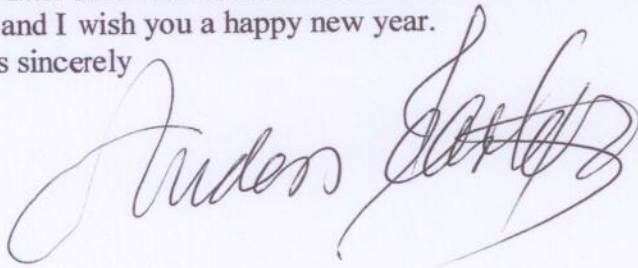 and I wish you a happy new year.
s sincerely
Anders